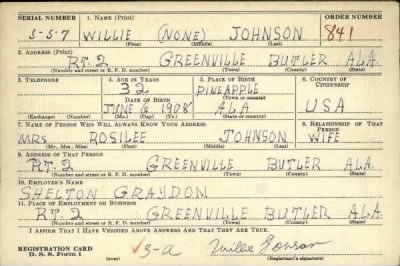 SERIAL NUMBER 1. NAME (Print) ORDER NUMBER
S-57 WILLIE (NONE) JOHNSON 841
(First) (Middle) (Last)
2. ADDRESS (Print)
RT. 2 GREENVILLE BUTLER ALA.
(Number and street or R. F. D. number) (Town) (County) (State)
3. TELEPHONE 4. AGE IN YEARS 5. PLACE OF BIRTH 6. COUNTRY OF CITIZENSHIP
32 PINEAPPLE
(Town or county)
DATE OF BIRTH
JUNE 6 1908 ALA USA
(Exchange) (Number) (Mo.) (Day) (Yr.) (State or country)
7. NAME OF PERSON WHO WILL ALWAYS KNOW YOUR ADDRESS 8. RELATIONSHIP OF THAT PERSON
MRS ROSILEE JOHNSON WIFE
(Mr., Mrs., Miss) (First) (Middle) (Last)
9. ADDRESS OF THAT PERSON
RT. 2 GREENVILLE BUTLER ALA.
(Number and street or R. F. D. number) (Town) (County) (State)
10. EMPLOYER'S NAME
SHELTON GRAYDON
11. PLACE OF EMPLOYMENT OR BUSINESS
RT. 2 GREENVILLE BUTLER ALA.
(Number and street or R. F. D. number) (Town) (County) (State)
I AFFIRM THAT I HAVE VERIFIED ABOVE ANSWERS AND THAT THEY ARE TRUE.
REGISTRATION CARD
D. S. S. Form 1 (over) (Registrant's signature)
Willie Johnson